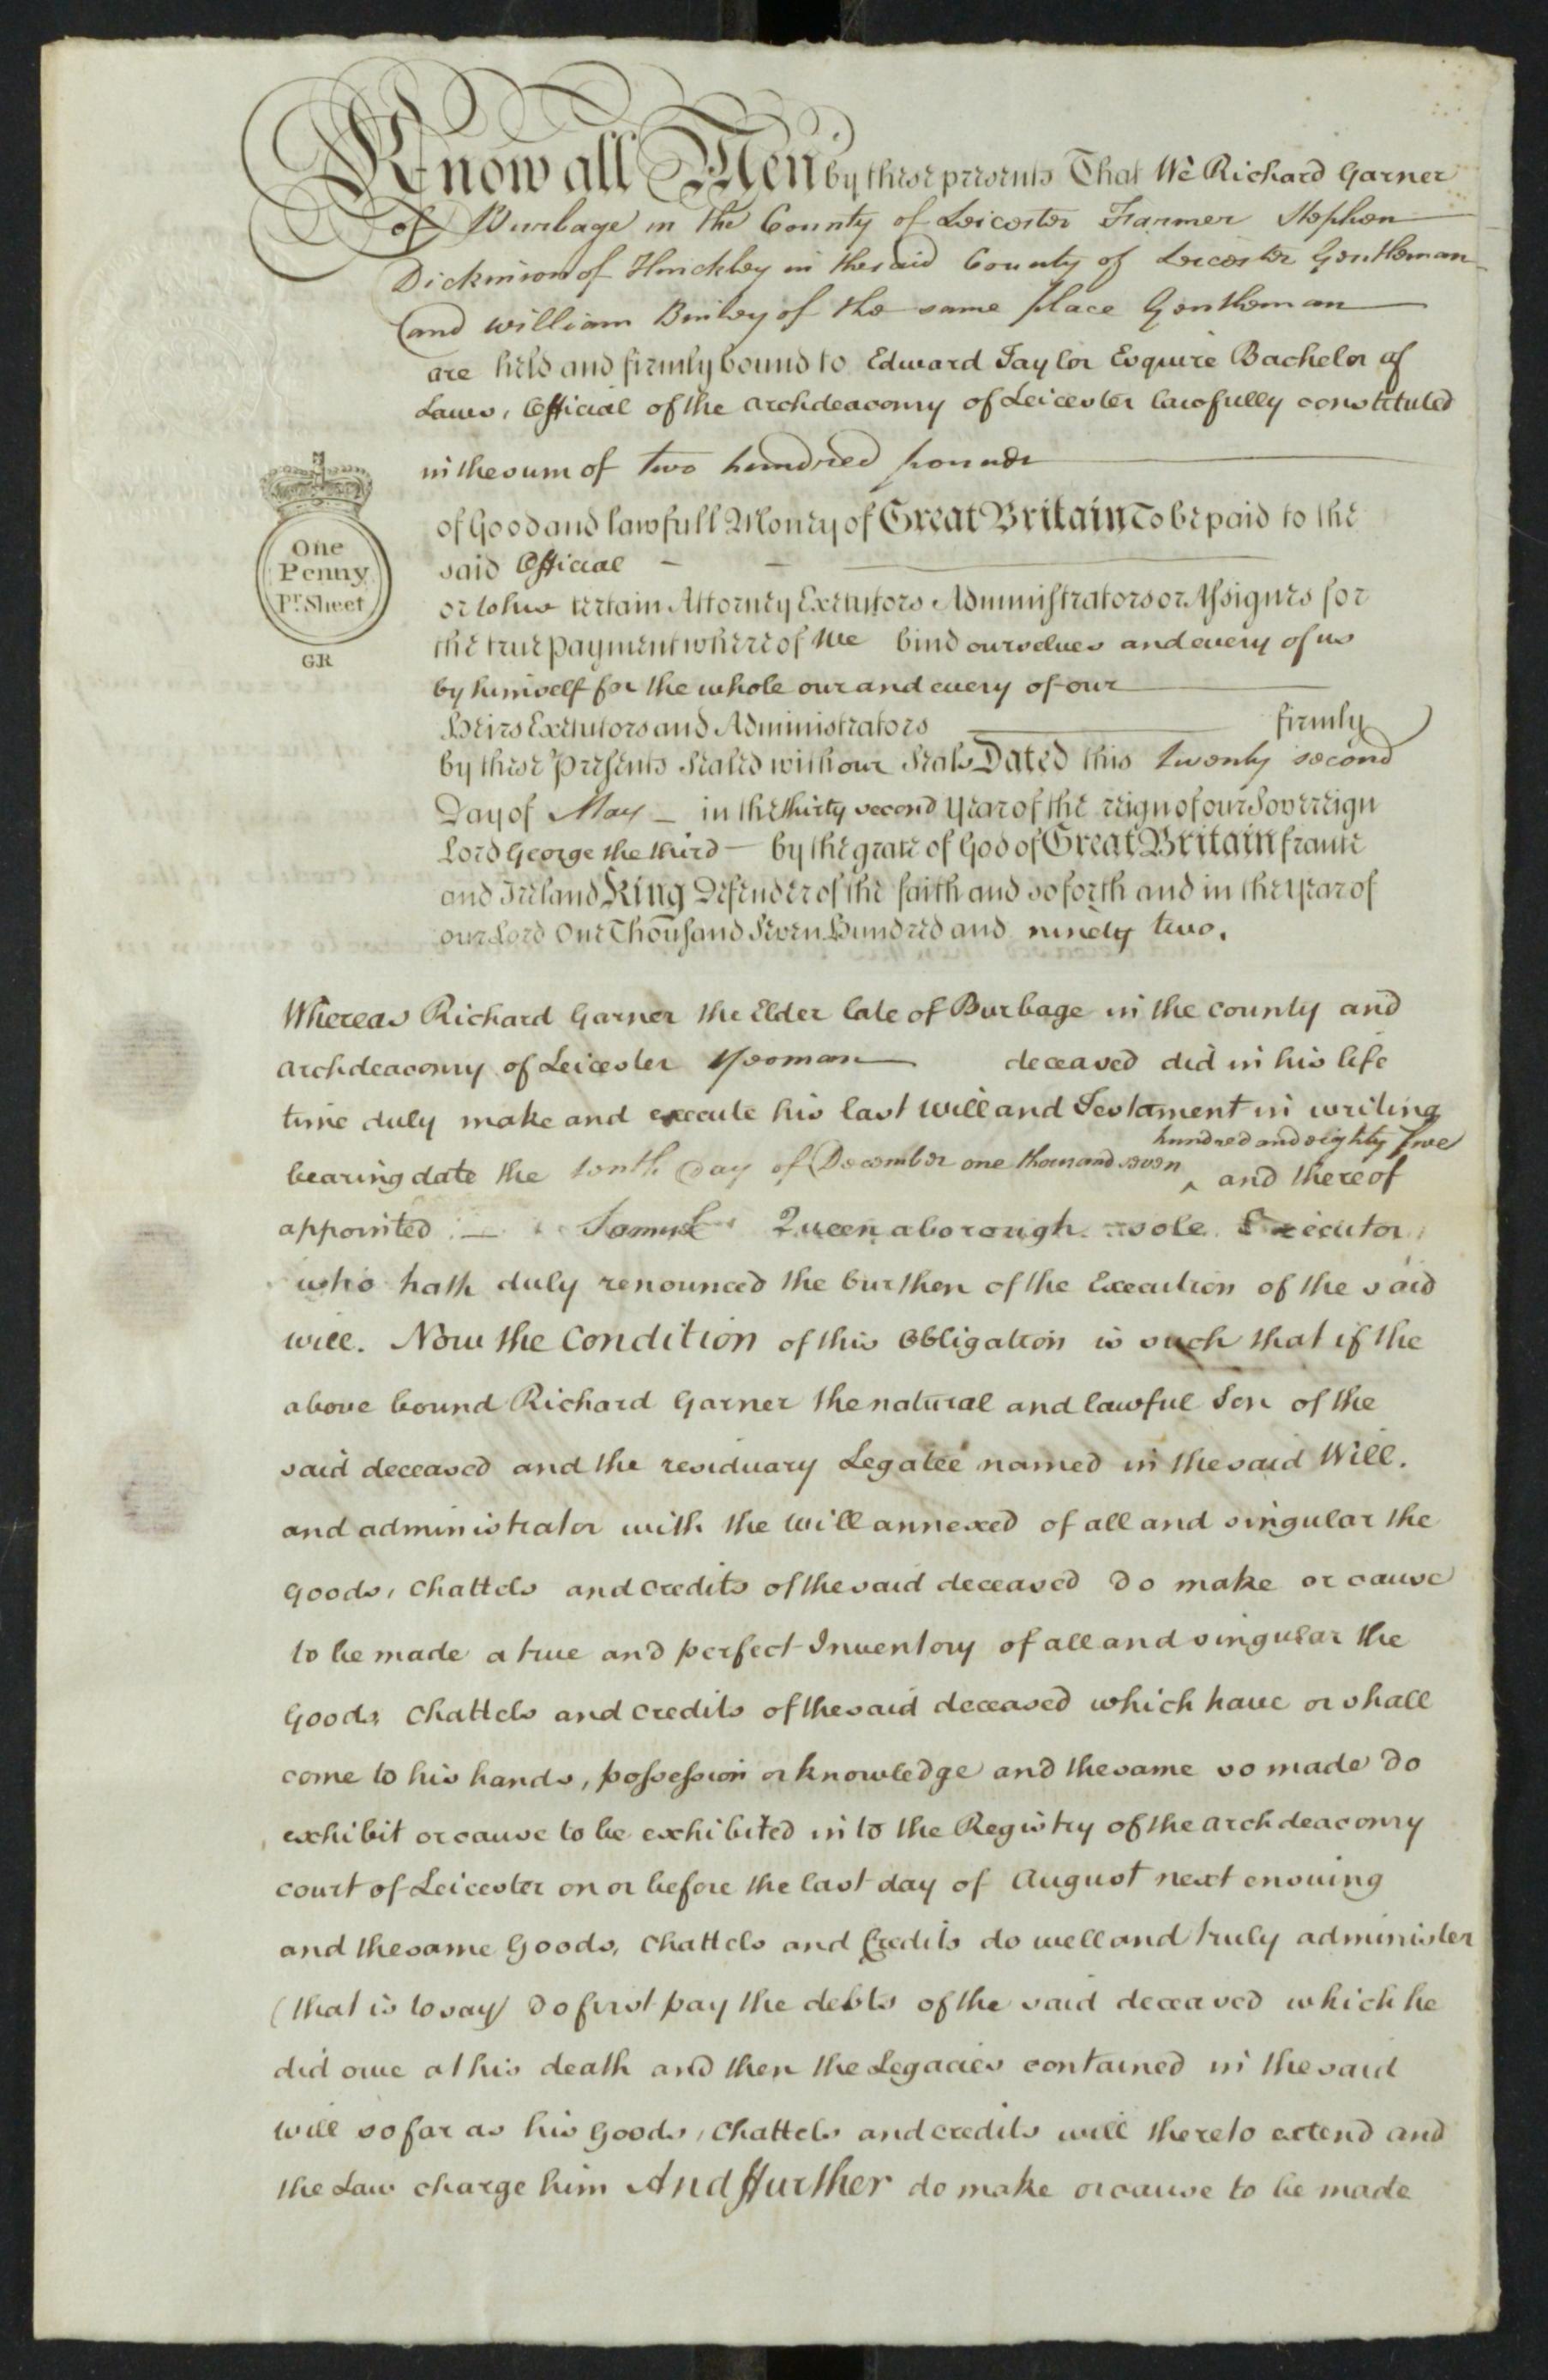 Know all Men by these presents That We Richard Garner
of Burbage in the County of Leicester Farmer Stephen
Dickinson of Hinckley in the said County of Leicester Gentleman
and William Binley of the same place Gentleman
are held and firmly bound to Edward Taylor Esquire Bachelor of
Laws, Official of the Archdeaconry of Leicester lawfully constituted
in the sum of two hundred pounds
of Good and lawfull Money of Great Britain To be paid to the
said Official
or to his certain Attorney Executors Administrators or Assignes for
the true payment whereof We bind ourselves and every of us
by himself for the whole our and every of our
Heirs Executors and Administrators firmly
by these Presents Sealed with our Seals Dated this twenty second
Day of May in the thirty second Year of the reign of our Sovereign
Lord George the third by the grace of God of Great Britain france
and Ireland King Defender of the faith and so forth and in the Year of
our Lord One Thousand Seven Hundred and ninety two.
One
Penny
Pr Sheet
GR
Whereas Richard Garner the Elder late of Burbage in the county and
Archdeaconry of Leicester Yeoman deceased did in his life
time duly make and execute his last Will and Testament in writing
hundred and eighty five
bearing date the tenth Day of December one thousand seven ^ and thereof
appointed Samuel Queenaborough sole Executor
who hath duly renounced the burthen of the Execution of the said
will. Now the Condition of this Obligation is such that if the
above bound Richard Garner the natural and lawful Son of the
said deceased and the residuary Legatee named in the said Will.
and administrator with the Will annexed of all and singular the
Goods, Chattels and Credits of the said deceased Do make or cause
to be made a true and perfect Inventory of all and singular the
Goods, Chattels and Credits of the said deceased which have or shall
come to his hands, possession or knowledge and the same so made Do
exhibit or cause to be exhibited into the Registry of the Archdeaconry
court of Leicester on or before the last day of August next ensuing
and the same Goods, Chattels and Credits do well and truly administer
(that is to say) Do first pay the debts of the said deceased which he
did owe at his death and then the Legacies contained in the said
will so far as his Goods, Chattels and credits will thereto extend and
the Law charge him And ffurther do make or cause to be made